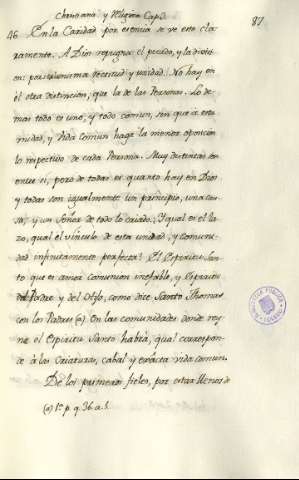 Christiana y Religiosa Cap.
87
46 En la Caridad por esencia se ve esto cla-
ramente. A Dios repugna el pecado, y la division:
por suma rectitud y unidad. No hay en
él otra distincion, que la de las Personas. Lo de-
mas todo es uno, y todo comun, sin que a esta
unidad, y Vida comun haga la menor oposicion
lo respectivo de cada Persona. Muy distintas son
entre si, pero de todas es quanto hay en Dios
y todas son igualmente un principio, una cau-
sa, y un Señor de todo lo criado. Y qual es el la-
zo, qual el vinculo de esta unidad, y comuni-
dad infinitamente perfecta? El Espiritu San-
to que es amor comunion inefable, y Espiritu
del Padre y del Hijo, como dice Santo Thomas
con los Padres (a) En las comunidades donde rey-
ne el Espiritu Santo habrá, qual correspon-
de á las criaturas, cabal y exácta vida comun.
De los primeros fieles, por estar llenos de
(a) 1.ª p. q. 36. a. 1.